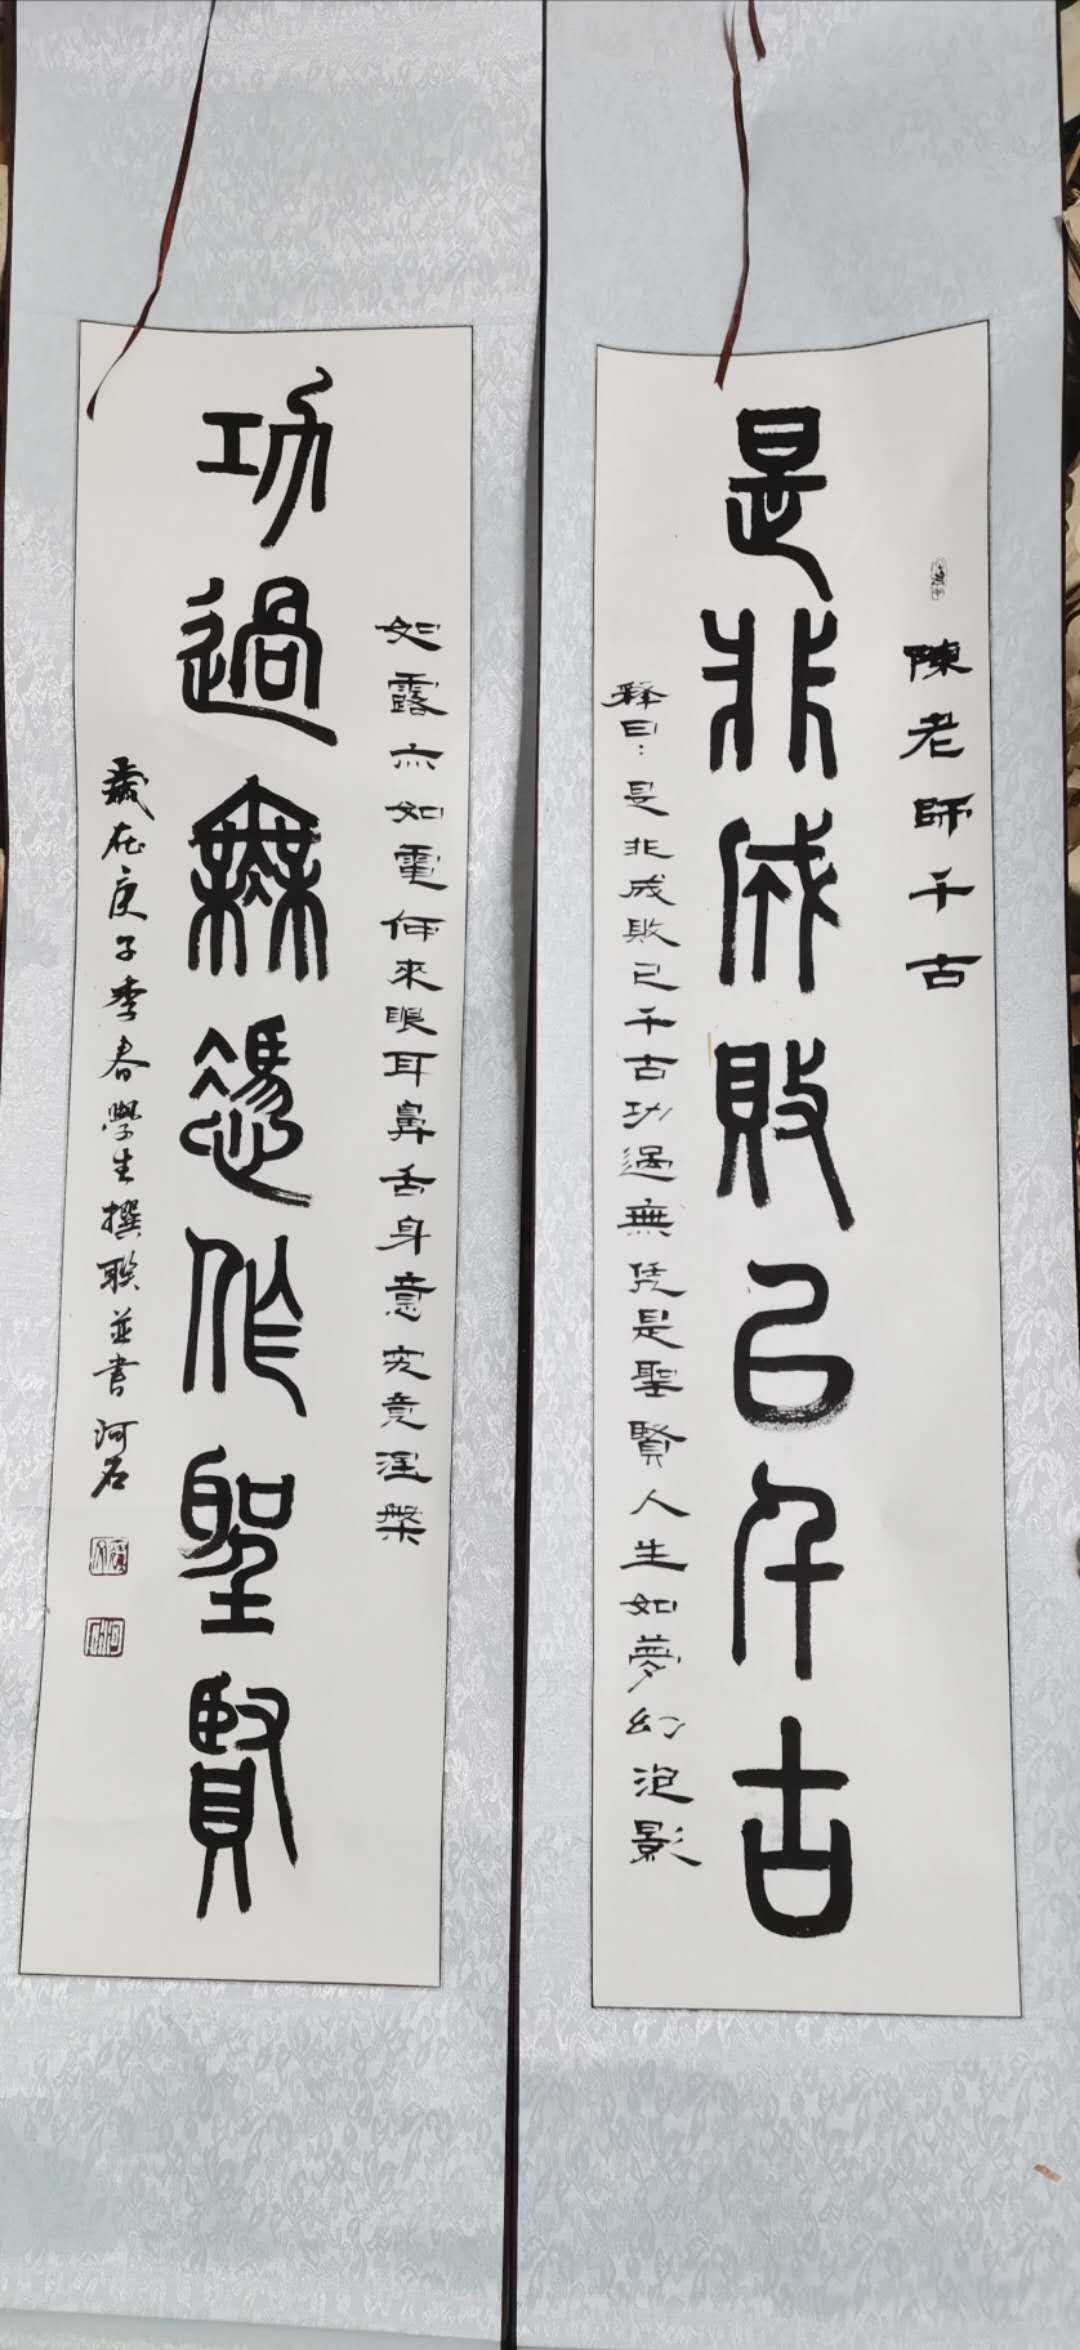 陳老師千古
是非成敗已千古
釋曰：是非成敗已千古功過無凭是聖賢人生如夢幻泡影
如露亦如電何來眼耳鼻舌身意究竟涅槃
功過無憑作聖賢
歲在庚子季春學生撰联並書河石